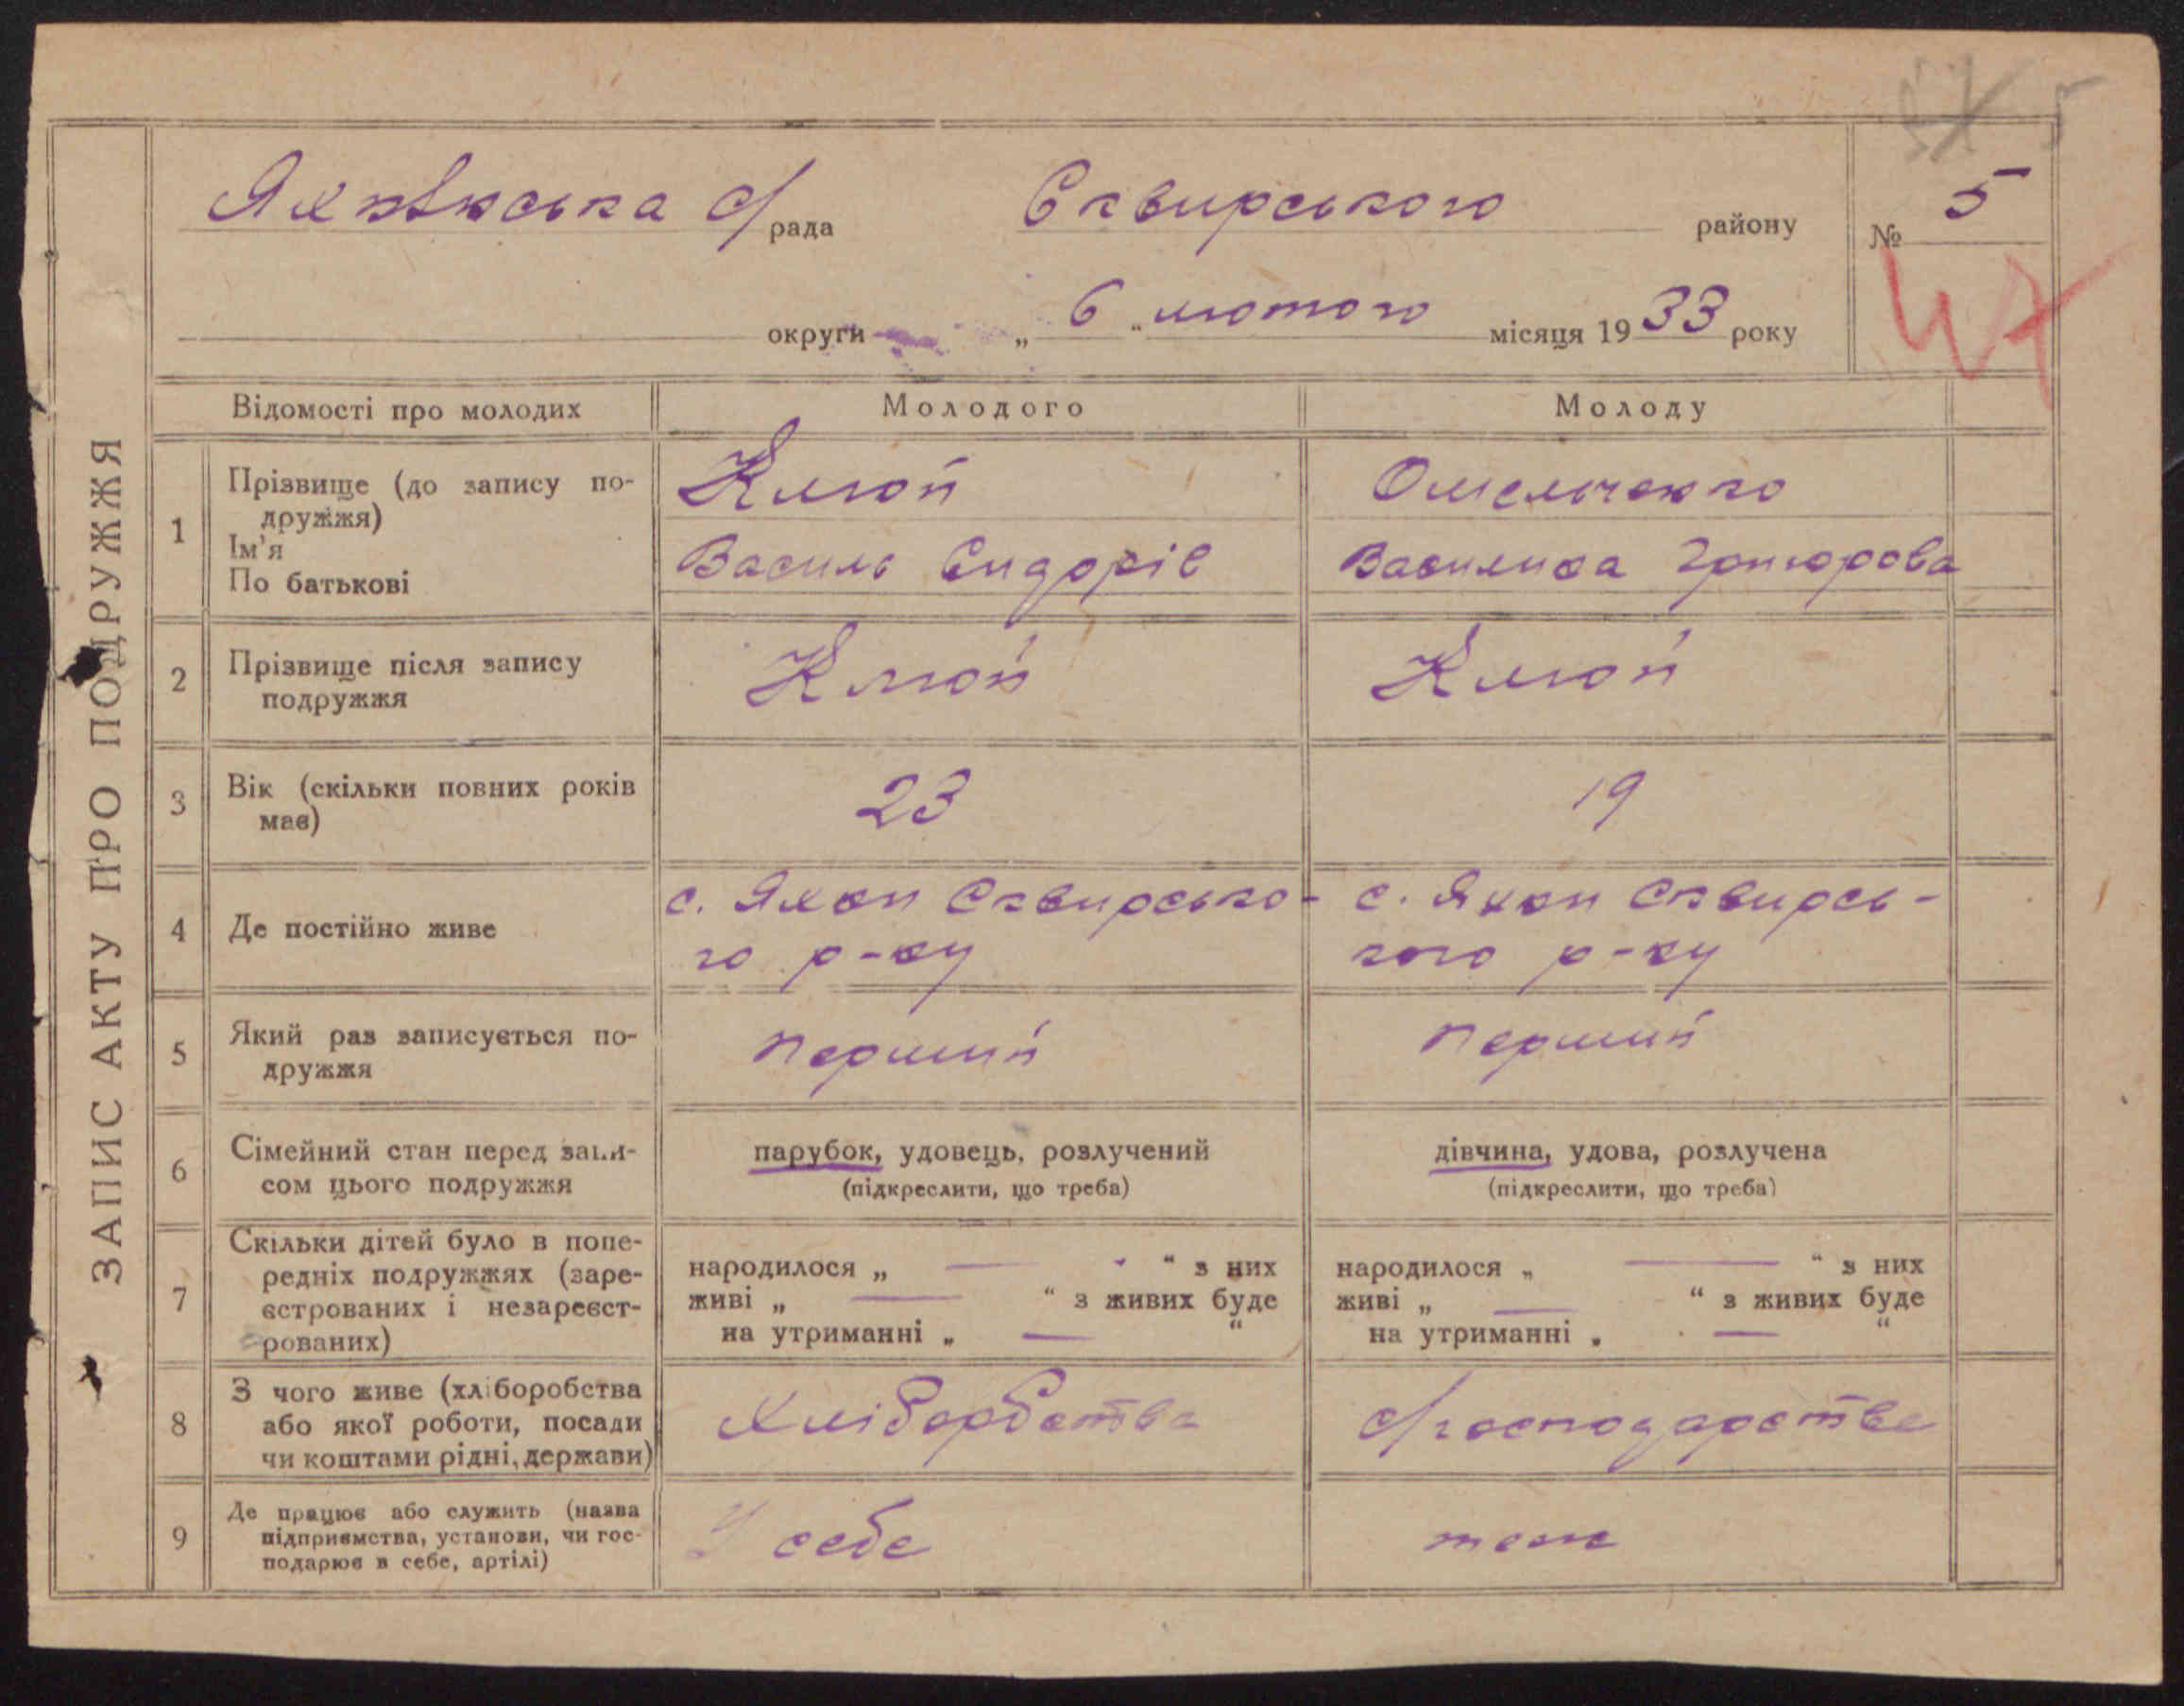 ЗАПИС АКТУ ПРО ПОДРУЖЖЯ
Яхнівська с/рада Сквирського району № 5
округи „ 6 “ лютого місяця 1933 року
47
Відомості про молодих Молодого Молоду
1 Прізвище (до запису по-дружжя) Клюй Омельченко
Ім'я
По батькові Василь Сидорів Василина Григорова
2 Прізвище після запису подружжя Клюй Клюй
3 Вік (скільки повних років має) 23 19
4 Де постійно живе с. Яхни Сквирсько- с. Яхни Сквирсь-
го р-ну кого р-ну
5 Який раз записується по-дружжя перший перший
6 Сімейний стан перед запи-сом цього подружжя парубок, удовець, розлучений дівчина, удова, розлучена
(підкреслити, що треба) (підкреслити, що треба)
7 Скільки дітей було в попе-редніх подружжях (заре-єстрованих і незареєст-рованих)
народилося „ — “ з них народилося „ — “ з них
живі „ — “ з живих буде живі „ — “ з живих буде
на утриманні „ — “ на утриманні „ — “
8 З чого живе (хліборобства або якої роботи, посади чи коштами рідні, держави) Хліборбства с/господарства
9 Де працює або служить (назва підприємства, установи, чи гос-подарює в себе, артілі) У себе теж